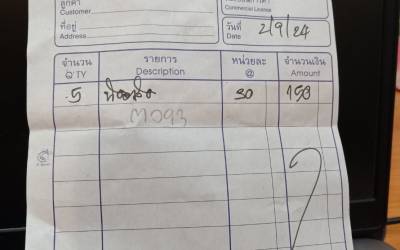 ลูกค้า
Customer
Commercial License
ที่อยู่
Address
วันที่ 2/9/24
Date
จำนวน รายการ หน่วยละ จำนวนเงิน
Q'TY Description @ Amount
5 30 150